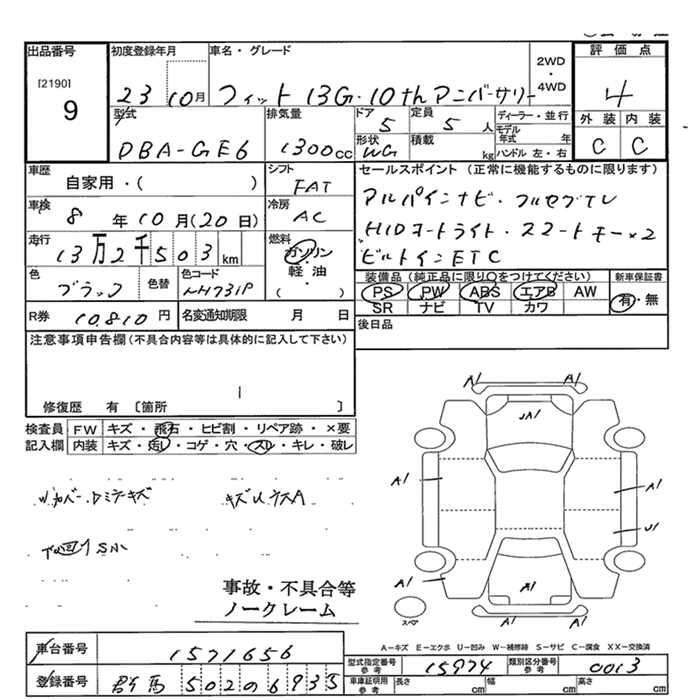 出品番号
[2190]
9
初度登録年月
23 10月
車名・グレード
フィット 13G・10th アニバーサリー
2WD・4WD
評価点
4
外装 内装
C C
型式
DBA-GE6
排気量
1300cc
ドア
5
定員
5人
形状
WG
積載
kg
ディーラー・並行
モデル年式 年
ハンドル 左・右
車歴
自家用・( )
シフト
FAT
セールスポイント (正常に機能するものに限ります)
アルパインナビ・フルセグTV
HIDヘッドライト・スマートキー×2
ビルトインETC
車検
8年10月(20日)
冷房
AC
走行
13万2千503km
燃料
ガソリン・軽油・( )
色
ブラック
色替
色コード
NH731P
装備品 (純正品に限り○をつけてください)
PS PW ABS エアB AW
SR ナビ TV カワ
新車保証書
有・無
R券 10,810円
名変通知期限 月 日
後日品
注意事項申告欄(不具合内容等は具体的に記入して下さい)
修復歴 有 〔箇所 〕
検査員記入欄
FW キズ・飛石・ヒビ割・リペア跡・×要
内装 キズ・汚レ・コゲ・穴・スレ・キレ・破レ
キズUススA
下回りS小
事故・不具合等
ノークレーム
A1 A1
UA1
A1 A1
U1
A1
A1 A1
スペア
A-キズ E-エクボ U-凹み W-補修跡 S-サビ C-腐食 XX-交換済
車台番号
1571656
登録番号
群馬 502 の 6935
型式指定番号 参考
15974
類別区分番号 参考
0013
車庫証明用 参考
長さ cm
幅 cm
高さ cm